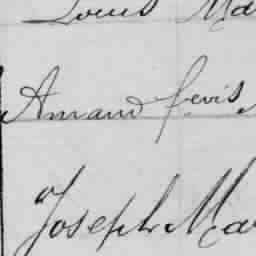 Louis Ma
Amand fevis
Joseph Ma